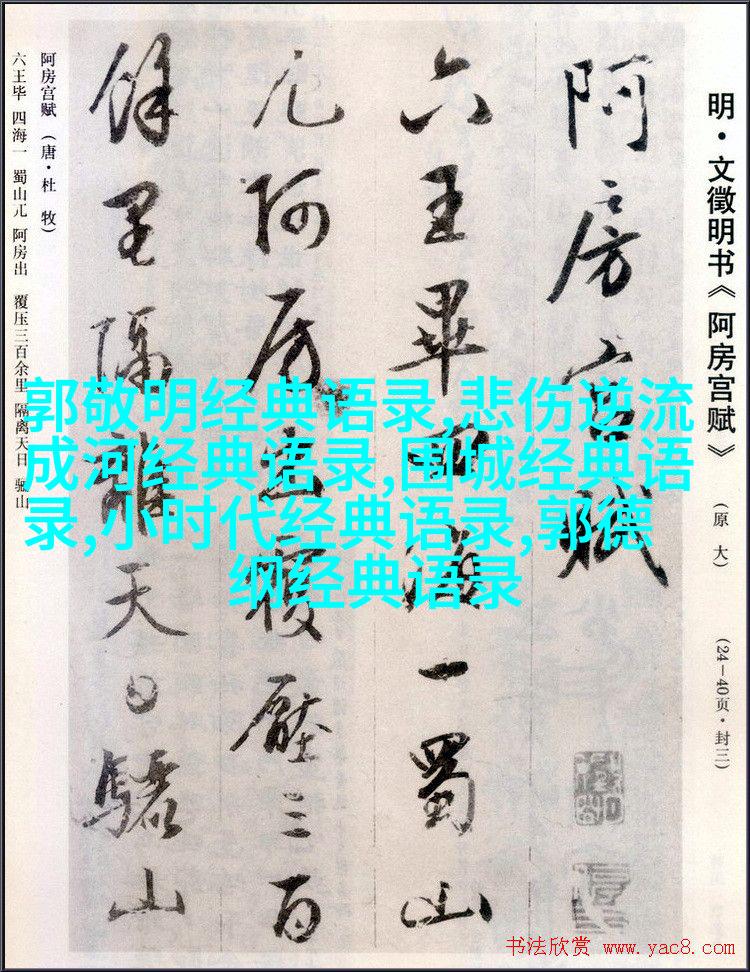 明·文徵明书《阿房宫赋》
(原大)
(24—40页·封三)
阿房宫赋
六王畢四海一蜀山
兀阿房出覆壓三百
餘里隔離天日驪山
阿房宫赋(唐·杜牧)
六王毕 四海一 蜀山兀 阿房出 覆压三百余里 隔离天日 骊山
郭敬明经典语录,悲伤逆流
成河经典语录,围城经典语
录,小时代经典语录,郭德
纲经典语录
书法欣赏 www.yac8.com